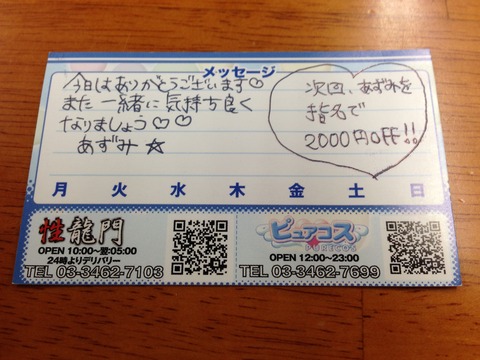 メッセージ
今日はありがとうございます♡
また一緒に気持ち良く
なりましょう♡♡
あずみ☆
次回、あずみを
指名で
2000円OFF!!
月 火 水 木 金 土 日
性龍門
OPEN 10:00~翌05:00
24時よりデリバリー
TEL 03-3462-7103
ピュアコス
PURECOS
OPEN 12:00~23:00
TEL 03-3462-7699